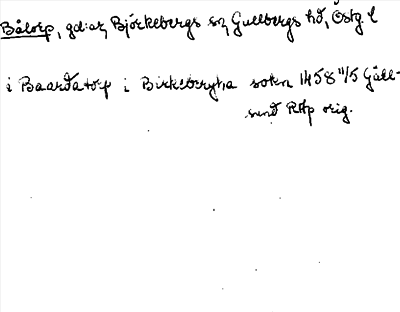 Båtorp, gd:ar, Björkebergs sn, Gullbergs hd, Östg l
i Baardatorp i Birkebergha sokn 1458 11/5 Gåll-
sund RAp orig.